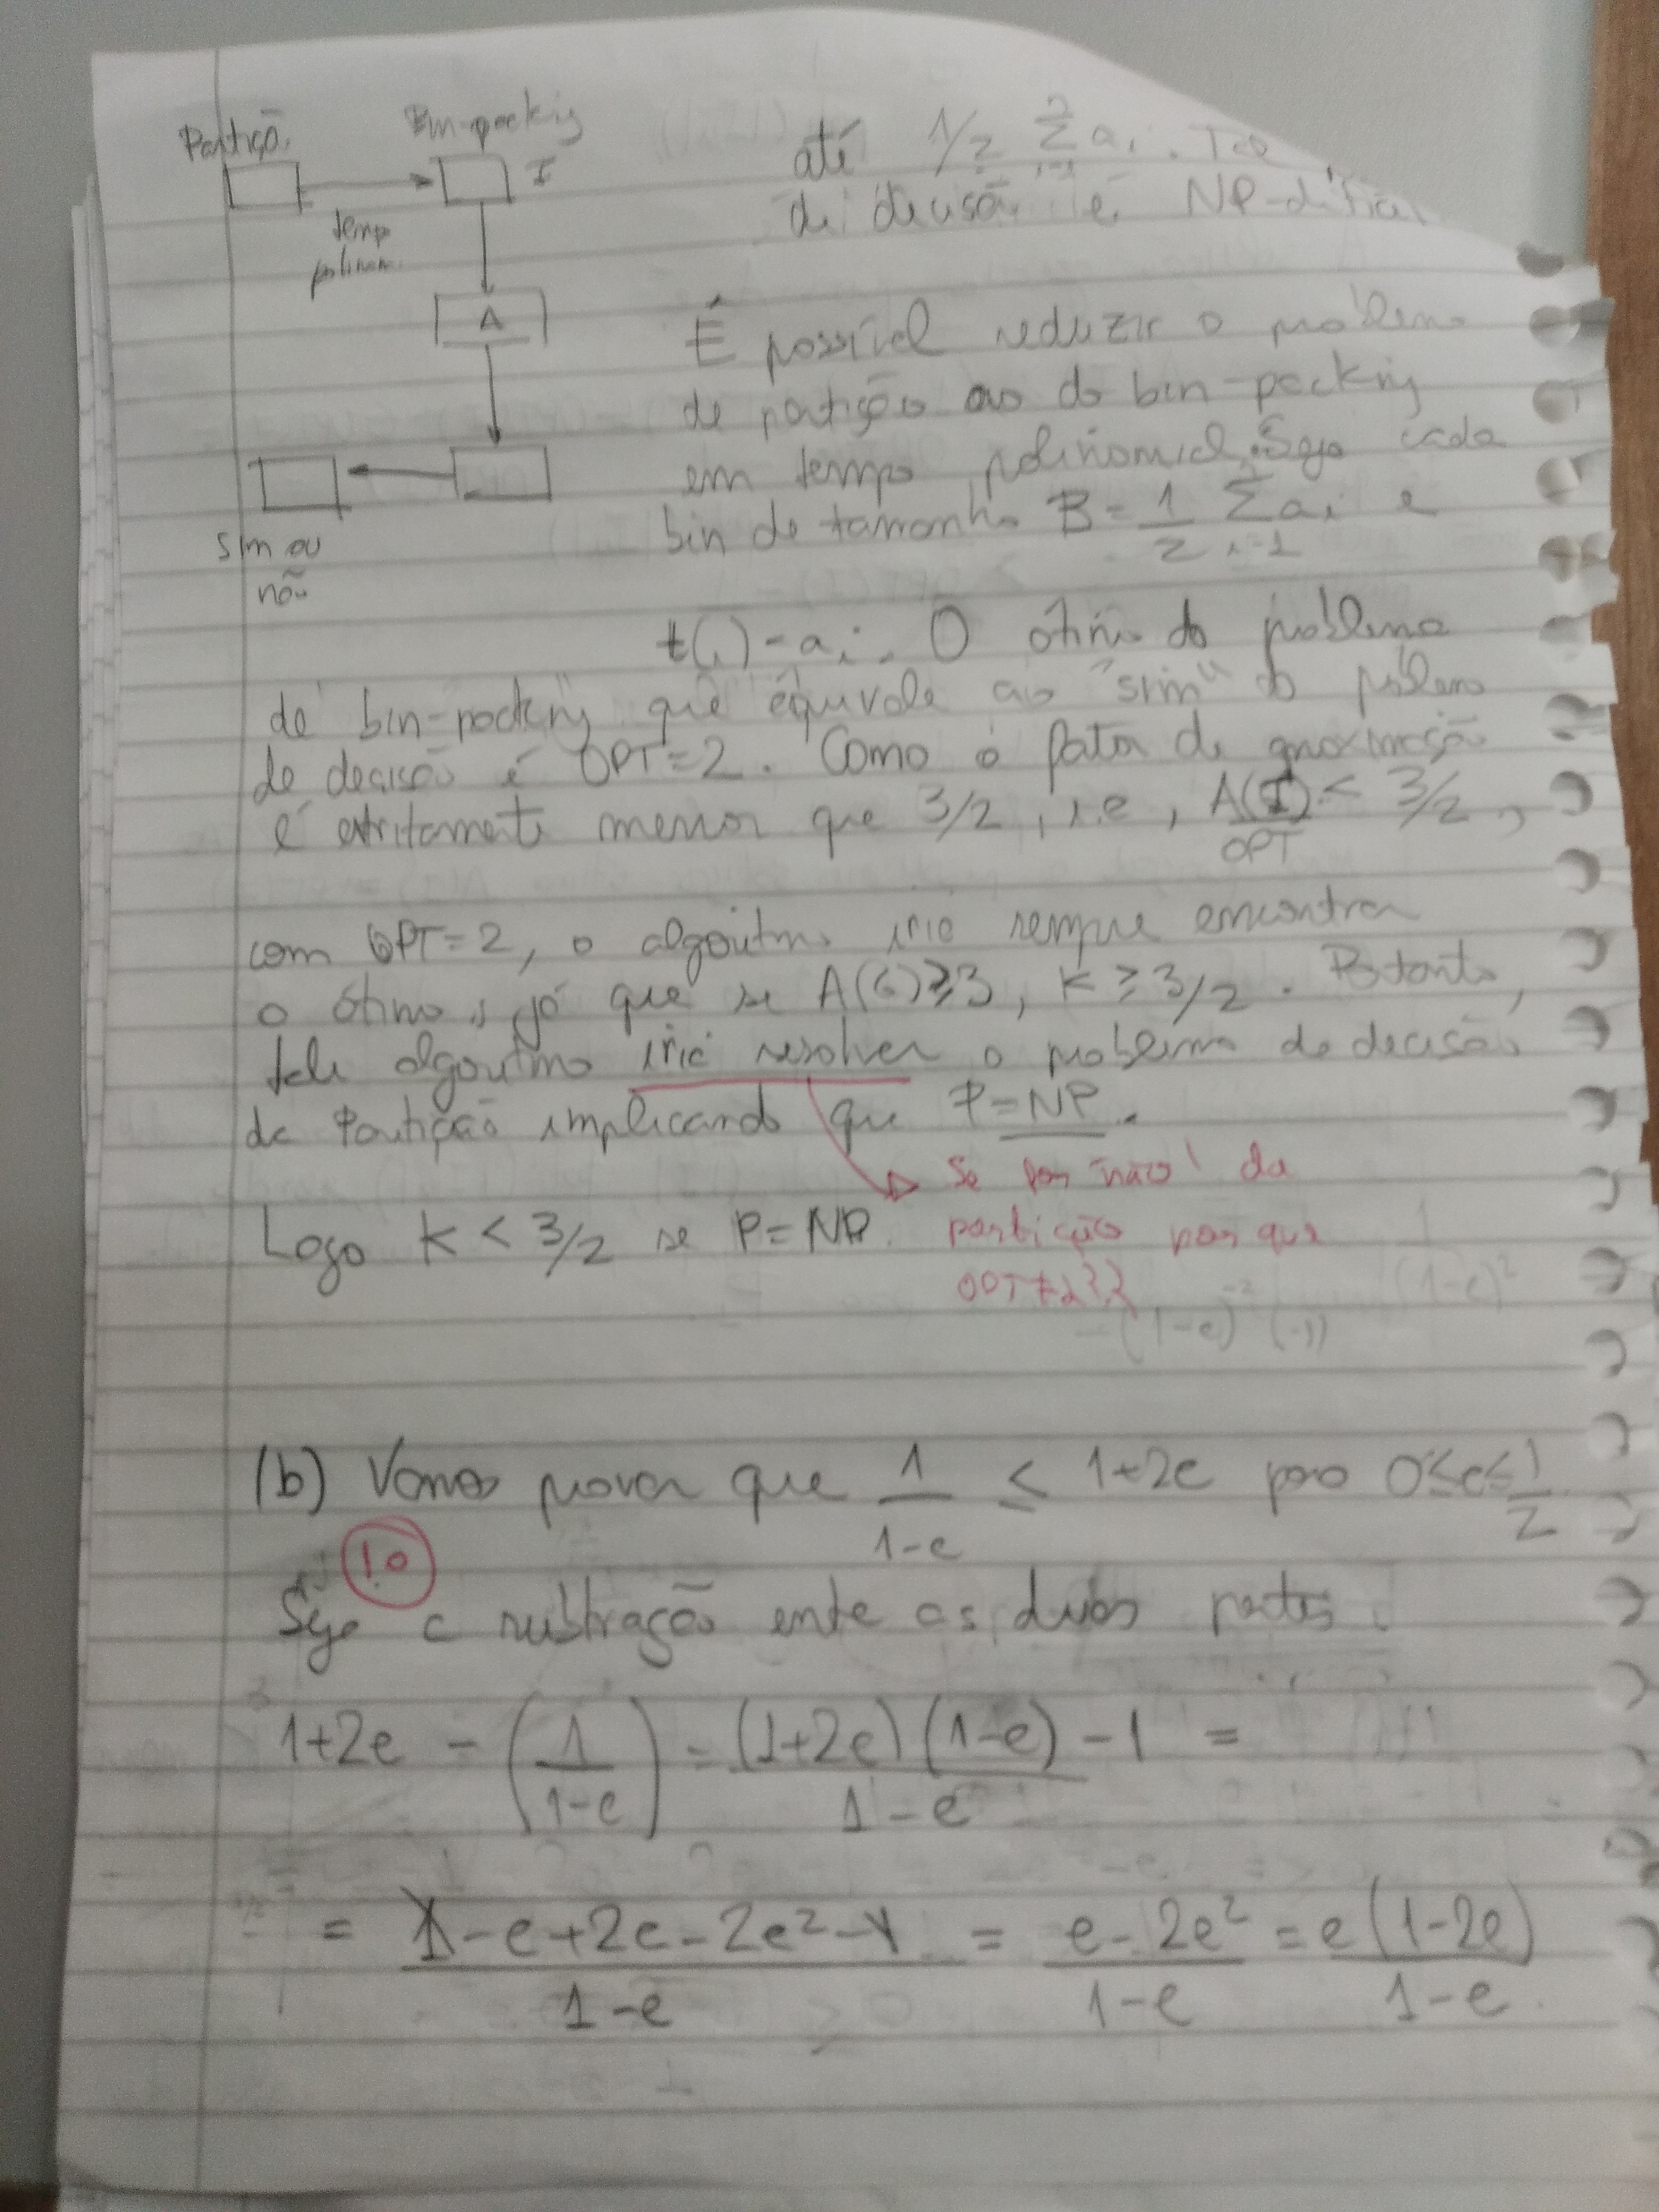 Partição
Bin-packing
I
temp
polinom.
A
sim ou
não
até 1/2 Σ ai.
de decisão é NP-difícil
É possível reduzir o problema
de partição ao do bin-packing
em tempo polinomial. Seja cada
bin de tamanho B = 1/2 Σ ai e
i=1
t(i) = ai. O ótimo do problema
de bin-packing que equivale ao "sim" do problema
de decisão é OPT=2. Como o fator de aproximação
é estritamente menor que 3/2, i.e, A(I)/OPT < 3/2,
com OPT=2, o algoritmo irá sempre encontrar
o ótimo, já que se A(G)≥3, K ≥ 3/2. Portanto,
tal algoritmo irá resolver o problema de decisão
de Partição implicando que P=NP.
Se for "não" da
Logo K < 3/2 se P=NP.
partição por que
OPT≠2??
1/(1-e)²
-(1-e)⁻² (-1)
(b) Vamos provar que 1/(1-e) ≤ 1+2e para 0≤e≤1/2
1.0
Seja a subtração entre as duas partes:
1+2e - (1/(1-e)) = ((1+2e)(1-e) - 1)/(1-e) =
= (1-e+2e-2e²-1)/(1-e) = (e-2e²)/(1-e) = e(1-2e)/(1-e)